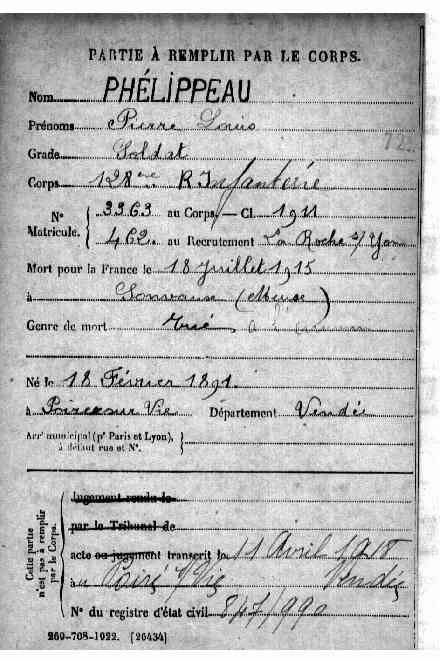 PARTIE À REMPLIR PAR LE CORPS.
Nom PHÉLIPPEAU
Prénoms Pierre Louis
Grade Soldat
Corps 128ème R Infanterie
N° Matricule. { 3363 au Corps. — Cl. 1911
462. au Recrutement La Roche s/ Yon
Mort pour la France le 18 Juillet 1915
à Sonvaux (Meuse)
Genre de mort Tué, à l'ennemi
Né le 18 Février 1891.
à Poiré sur Vie Département Vendée
Arrt municipal (pr Paris et Lyon), à défaut rue et N°. }
Cette partie n'est pas à remplir par le Corps. {
Jugement rendu le
par le Tribunal de
acte ou jugement transcrit le 11 Avril 1918
à Poiré s/Vie Vendée
N° du registre d'état civil 847/990
269-708-1922. [26434]